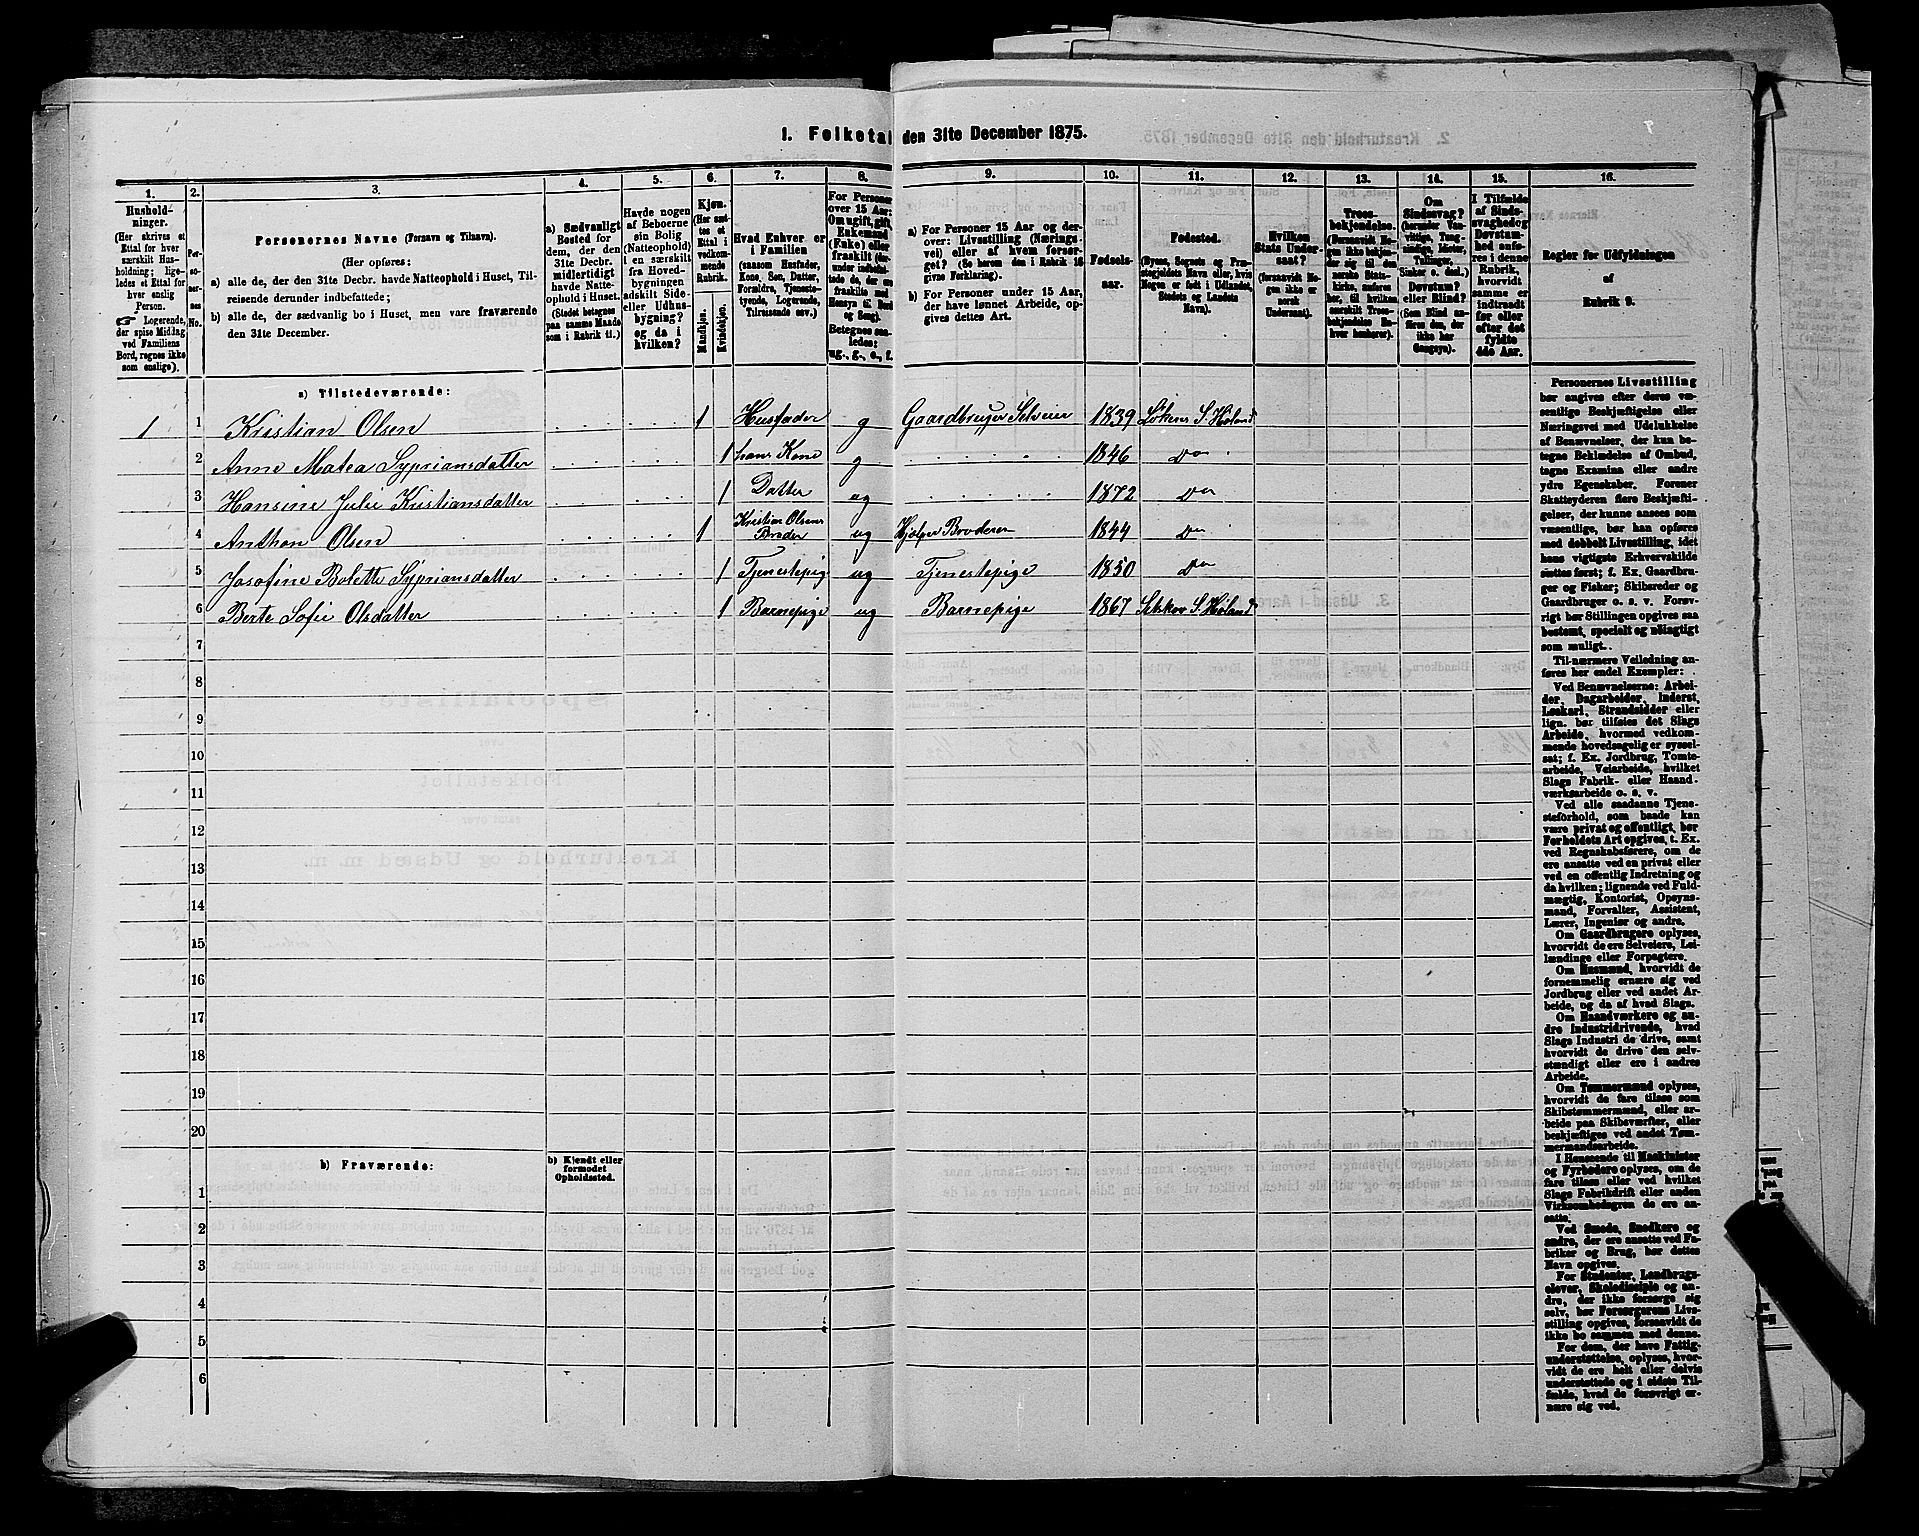 1. Folketal den 31te December 1875.
1.
2.
3.
4.
5.
6.
7.
8.
9.
10.
11.
12.
13.
14.
15.
16.
Hushold-
ninger.
(Her skrives et
Ettal for hver
særskilt Hus-
holdning; lige-
ledes et Ettal for
hver enslig
Person.
☞ Logerende,
der spise Middag
ved Familiens
Bord, regnes ikke
som enslige).
Per-
so-
ner-
nes
No.
Personernes Navne (Fornavn og Tilnavn).
(Her opføres:
a) alle de, der den 31te Decbr. havde Natteophold i Huset, Til-
reisende derunder indbefattede;
b) alle de, der sædvanlig bo i Huset, men vare fraværende
den 31te December.
a) Sædvanligt
Bosted for
dem, der den
31te Decbr.
midlertidigt
havde Natte-
ophold i Huset.
(Stedet betegnes
paa samme Maade
som i Rubrik 11.)
Havde nogen
af Beboerne
sin Bolig
(Natteophold)
i en særskilt
fra Hoved-
bygningen
adskilt Side-
eller Udhus-
bygning?
og da i
hvilken?
Kjøn.
(Her sæt-
tes et
Ettal i
vedkom-
mende
Rubrik.
Mandkjøn.
Kvindekjøn.
Hvad Enhver er
i Familien
(saasom Husfader,
Kone, Søn, Datter,
Forældre, Tjeneste-
tyende, Logerende,
Tilreisende osv.)
For Personer
over 15 Aar:
Om ugift, gift,
Enkemand
(Enke) eller
fraskilt
Betegnes saa-
ledes:
ug., g., e., f.
a) For Personer 15 Aar og der-
over: Livsstilling (Nærings-
vei) eller af hvem forsør-
get? (Se herom den i Rubrik 16
givne Forklaring).
b) For Personer under 15 Aar,
der have lønnet Arbeide, op-
gives dettes Art.
Fødsels-
aar.
Fødested.
(Byens, Sognets og Præ-
stegjeldets Navn eller, hvis
Nogen er født i Udlandet,
Stedets og Landets
Navn).
Hvilken
Stats Under-
saat?
(forsaavidt No-
gen ikke er
norsk
Undersaat).
Troes-
bekjendelse.
(Forsaavidt No-
gen ikke bekjen-
der sig til den
norske Stats-
kirke, anføres
her, til hvilken
særskilt Troes-
bekjendelse En-
hver henhører).
Om
Sindssvag?
(herunder Van-
vittige, Tung-
sindige, Idioter,
Tullinger,
Sinker o. desl.)
Døvstum?
eller Blind?
(Som Blind an-
føres den, der
ikke har
Gangsyn).
I Tilfælde
af Sinds-
svaghed og
Døvstum-
hed anfø-
res i denne
Rubrik,
hvorvidt
samme er
indtraadt
før eller
efter det
fyldte
4de Aar.
Regler for Udfyldningen
af
Rubrik 9.
a) Tilstedeværende:
1 1 Kristian Olsen 1 Husfader g Gaardbruger Selveier 1839 Løkene S. Høland
2 Anne Matea Sypriansdatter 1 hans Kone g 1846 Do
3 Hansine Julie Kristiansdatter 1 Datter ug 1872 Do
4 Anthon Olsen 1 Kristian Olsens Broder ug Hjelper Broderen 1844 Do
5 Josefine Bolette Sypriansdatter 1 Tjenestepig ug Tjenestepige 1850 Do
6 Berte Sofie Olsdatter 1 Barnepige ug Barnepige 1867 S. Høland
7
8
9
10
11
12
13
14
15
16
17
18
19
20
b) Fraværende:
b) Kjendt eller
formodet
Opholdssted.
1
2
3
4
5
6
Personernes Livsstilling
bør angives efter deres væ-
sentlige Beskjæftigelse eller
Næringsvei med Udelukkelse
af Benævnelser, der kun be-
tegne Beklædelse af Ombud,
tagne Examina eller andre
ydre Egenskaber. Forener
Skatteyderen flere Beskjæfti-
gelser, der kunne ansees som
væsentlige, bør han opføres
med dobbelt Livsstilling, idet
hans vigtigste Erhvervskilde
sættes først; f. Ex. Gaardbru-
ger og Fisker; Skibsreder og
Gaardbruger o. s. v. Forøv-
rigt bør Stillingen opgives saa
bestemt, specielt og nøiagtigt
som muligt.
Til nærmere Veiledning an-
føres her endel Exempler:
Ved Benævnelserne: Arbei-
der, Dagarbeider, Inderst,
Løskarl, Strandsidder eller
lign. bør tilføies det Slags
Arbeide, hvormed vedkom-
mende hovedsagelig er syssel-
sat; f. Ex. Jordbrug, Tomte-
arbeide, Veiarbeide, hvilket
Slags Fabrik- eller Haand-
værksarbeide o. s. v.
Ved alle saadanne Tjene-
steforhold, som baade kan
være privat og offentligt, bør
Forholdets Art opgives, t. Ex.
ved Regnskabsførere, om de
ere ansatte ved en privat eller
ved en offentlig Indretning og
da hvilken; lignende ved Fuld-
mægtig, Kontorist, Opsyns-
mand, Forvalter, Assistent,
Lærer, Ingeniør og andre.
Om Gaardbrugere oplyses,
hvorvidt de ere Selveiere, Lei-
lændinge eller Forpagtere.
Om Husmænd, hvorvidt de
fornemmelig ernære sig ved
Jordbrug eller ved andet Ar-
beide, og da af hvad Slags.
Om Haandværkere og an-
dre Industridrivende, hvad
Slags Industri de drive, samt
hvorvidt de drive den selv-
stændigt eller ere i andres
Arbeide.
Om Tømmermænd oplyses,
hvorvidt de fare tilsøs som
Skibstømmermænd, eller ar-
beide paa Skibsværfter, eller
beskjæftiges ved andet Tøm-
mermandsarbeide.
I Henseende til Maskinister
og Fyrbødere oplyses, om de
fare tilsøs eller ved hvilket
Slags Fabrikdrift eller anden
Virksomhedsgren de ere an-
satte.
Ved Smede, Snedkere og
andre, der ere ansatte ved Fa-
briker og Brug, bør dettes
Navn opgives.
For Studenter, Landbrugs-
elever, Skoledisciple og an-
dre, der ikke forsørge sig
selv, bør Forsørgerens Livs-
stilling opgives, forsaavidt de
ikke bo sammen med denne.
For dem, der have Fattig-
understøttelse, oplyses, hvor-
vidt de ere helt eller delvis
understøttede og i sidste Til-
fælde, hvad de forøvrigt er-
nære sig ved.